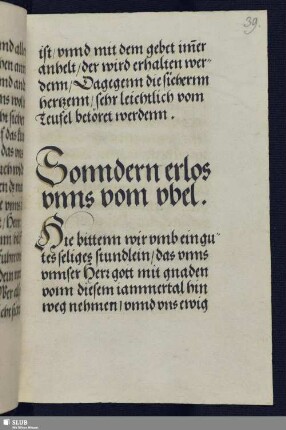 39.
ist / vnnd mit dem gebet im̅er
anhelt / der wird erhalten wer-
denn / Dagegenn die sichernn
hertzenn / sehr leichtlich vom
Teufel betöret werdenn .
Sonndern erlos
vnns vom vbel .
Hie bittenn wir vmb ein gu-
tes seliges stundlein / das vnns
vnnser Herr gott mit gnaden
vonn diesem iammertal hin
weg nehmen / vnnd vns ewig
SLUB